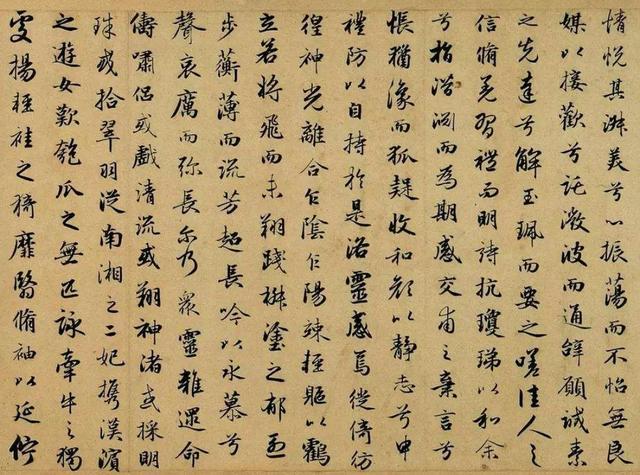 情悅其淑美兮心振蕩而不怡無良
媒以接歡兮託微波而通辭願誠素
之先達兮解玉珮而要之嗟佳人之
信脩羌習禮而明詩抗瓊珶以和余
兮指潛淵而為期感交甫之棄言兮
悵猶豫而狐疑收和顏以靜志兮申
禮防以自持於是洛靈感焉徙倚彷
徨神光離合乍陰乍陽竦輕軀以鶴
立若將飛而未翔踐椒塗之郁烈
步蘅薄而流芳超長吟以永慕兮
聲哀厲而彌長尔乃眾靈雜遝命
儔嘯侶或戲清流或翔神渚或採明
珠或拾翠羽從南湘之二妃攜漢濱
之遊女歎匏瓜之無匹詠牽牛之獨
處揚輕袿之猗靡翳脩袖以延佇